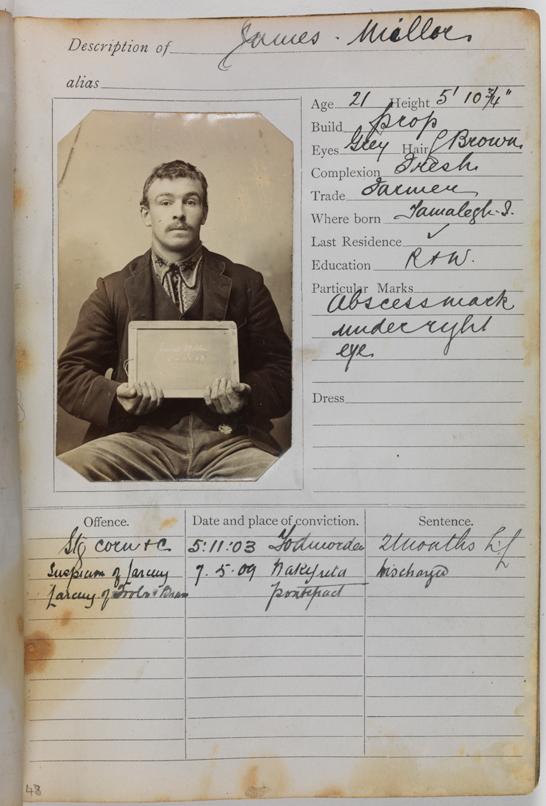 Description of James. Mellor
alias
Age 21 Height 5' 10¾"
Build prop
Eyes Grey Hair L Brown
Complexion Fresh
Trade Farmer
Where born
Last Residence ✓
Education R & W.
Particular Marks
Abscess mark
under right
eye
Dress
Offence. Date and place of conviction. Sentence.
Stg corn &c 5:11:03 Todmorden 2 months
Suspicion of Larceny 7.5.09 Wakefield Discharged
Larceny of Pontefract
48